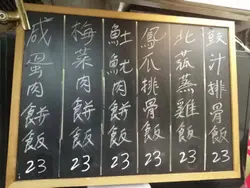 豉汁排骨飯 23
北菰蒸雞飯 23
鳳爪排骨飯 23
魷肉餅飯 23
梅菜肉餅飯 23
咸蛋肉餅飯 23